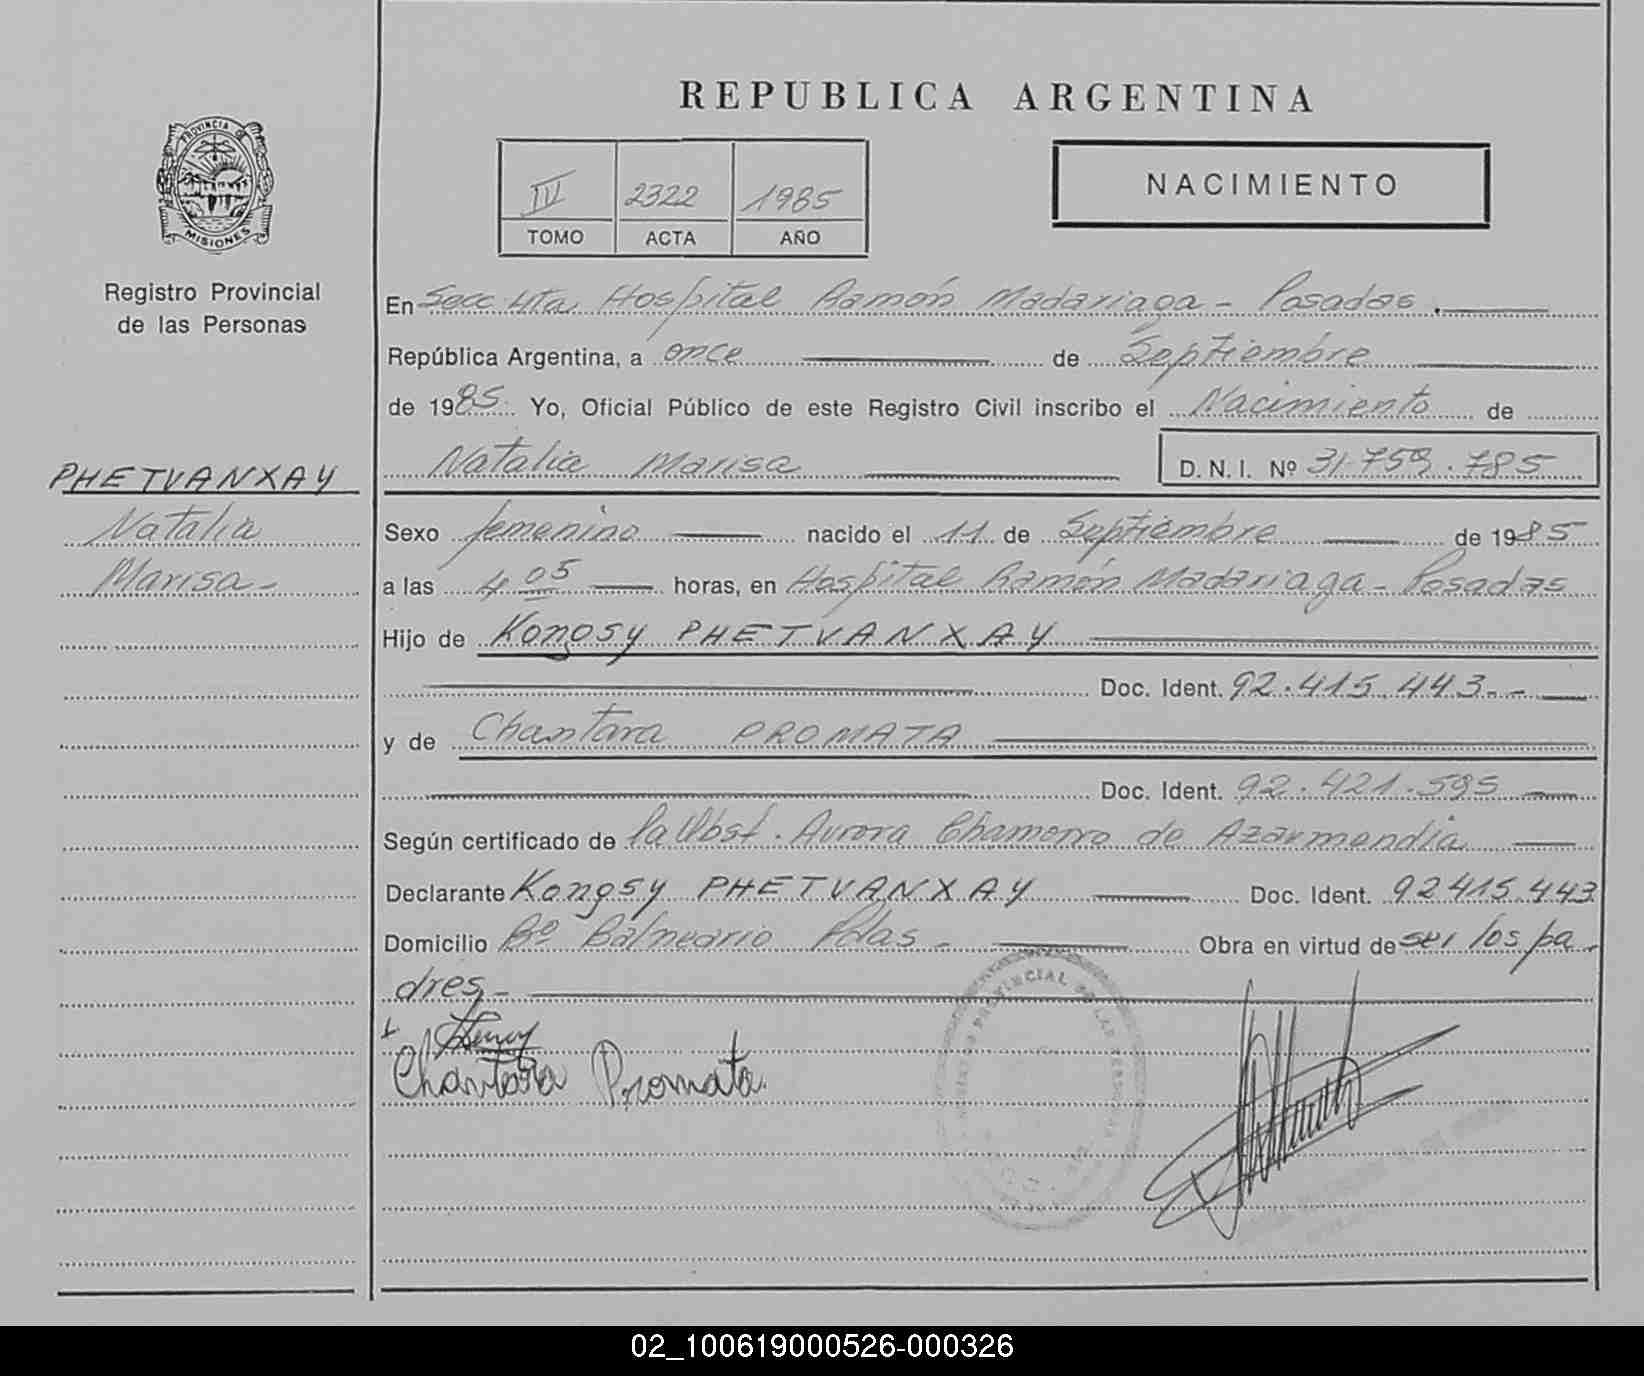 REPUBLICA ARGENTINA
PROVINCIA DE
MISIONES
IV 2322 1985
TOMO ACTA AÑO
NACIMIENTO
Registro Provincial
de las Personas
En Secc. 4ta. Hospital Ramón Madariaga - Posadas.
República Argentina, a once de Septiembre
de 1985. Yo, Oficial Público de este Registro Civil inscribo el Nacimiento de
Natalia Marisa D.N.I. Nº 31.759.785
PHETVANXAY
Natalia
Marisa-
Sexo femenino nacido el 11 de Septiembre de 1985
a las 4 05 horas, en Hospital Ramón Madariaga - Posadas
Hijo de Kongsy PHETVANXAY
Doc. Ident. 92.415.443--
y de Chantara PROMATA
Doc. Ident. 92.421.595
Según certificado de la Obst. Aurora Chamorro de Azarmendia
Declarante Kongsy PHETVANXAY Doc. Ident. 92415.443
Domicilio Bº Balneario Pdas - Obra en virtud de ser los pa-
dres-
Chantara Promata.
PROVINCIAL DE LAS PERSONAS
02_100619000526-000326